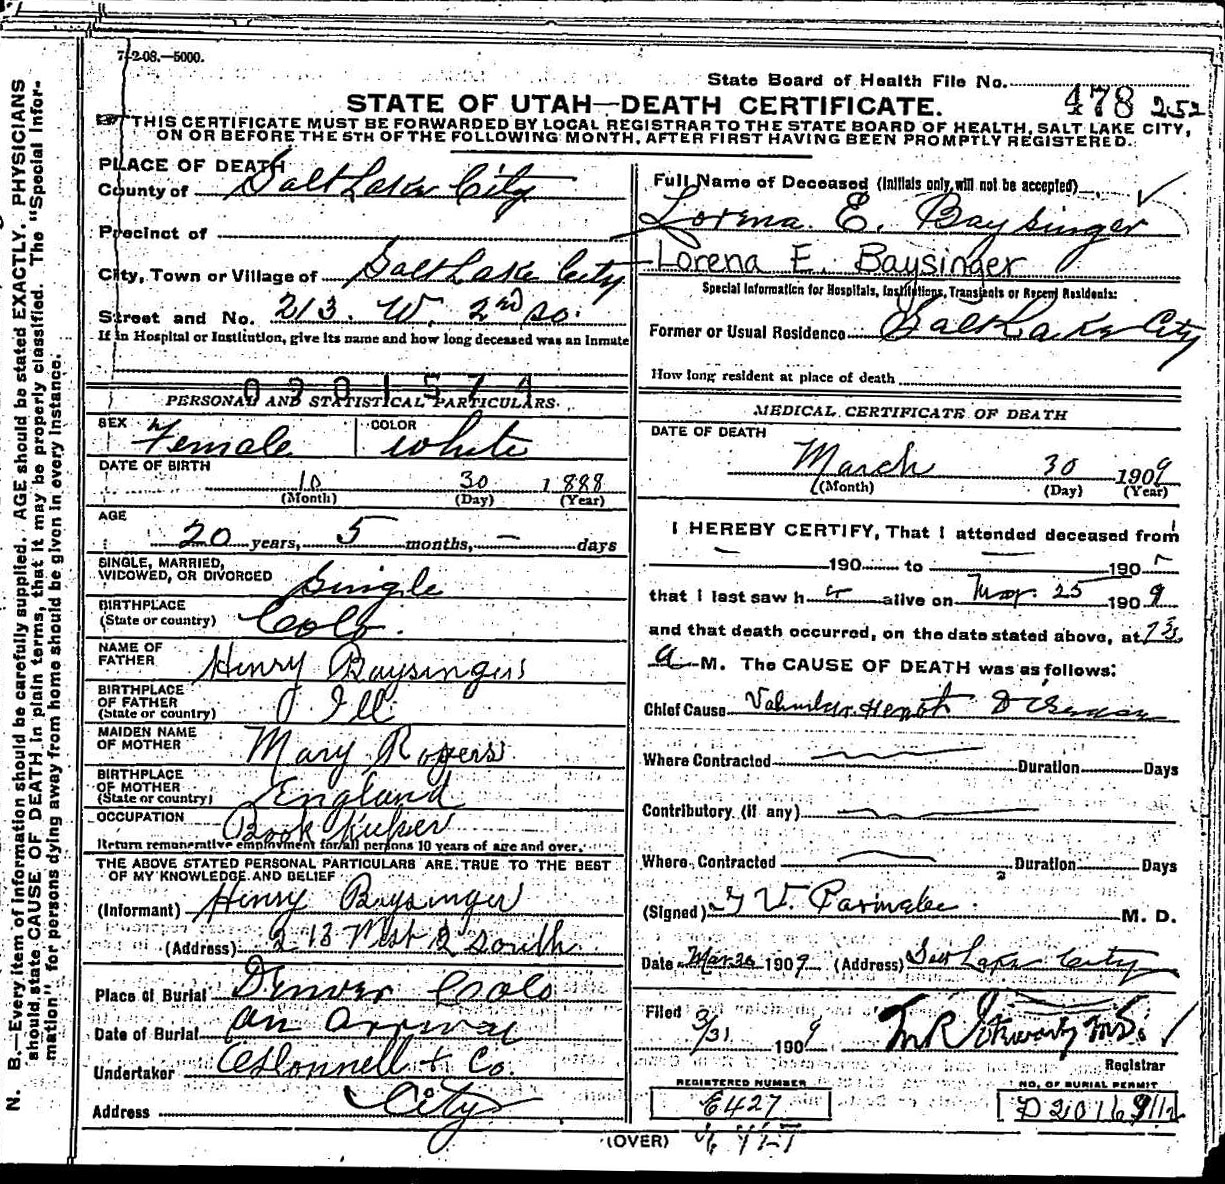 7-2-08.—5000.
State Board of Health File No. 478 252
STATE OF UTAH—DEATH CERTIFICATE.
THIS CERTIFICATE MUST BE FORWARDED BY LOCAL REGISTRAR TO THE STATE BOARD OF HEALTH, SALT LAKE CITY,
ON OR BEFORE THE 5TH OF THE FOLLOWING MONTH, AFTER FIRST HAVING BEEN PROMPTLY REGISTERED.
N. B.—Every item of information should be carefully supplied. AGE should be stated EXACTLY. PHYSICIANS
should state CAUSE OF DEATH in plain terms, that it may be properly classified. The "Special Infor-
mation" for persons dying away from home should be given in every instance.
PLACE OF DEATH
County of Salt Lake City
Precinct of
City, Town or Village of Salt Lake City
Street and No. 213. W. 2nd So.
If in Hospital or Institution, give its name and how long deceased was an Inmate
PERSONAL AND STATISTICAL PARTICULARS.
SEX Female COLOR white
DATE OF BIRTH
10 30 1888
(Month) (Day) (Year)
AGE
20 years, 5 months, — days
SINGLE, MARRIED,
WIDOWED, OR DIVORCED Single
BIRTHPLACE
(State or country) Colo.
NAME OF
FATHER Henry Baysinger
BIRTHPLACE
OF FATHER
(State or country) Ill
MAIDEN NAME
OF MOTHER Mary Rogers
BIRTHPLACE
OF MOTHER
(State or country) England
OCCUPATION Book Keeper
Return remunerative employment for all persons 10 years of age and over.
THE ABOVE STATED PERSONAL PARTICULARS ARE TRUE TO THE BEST
OF MY KNOWLEDGE AND BELIEF
(Informant) Henry Baysinger
(Address) 213 West 2 South
Place of Burial Denver Colo
Date of Burial on arrival
Undertaker O'Donnell & Co.
Address City
Full Name of Deceased (Initials only will not be accepted)
Lorena E. Baysinger
Lorena E. Baysinger
Special Information for Hospitals, Institutions, Transients or Recent Residents:
Former or Usual Residence Salt Lake City
How long resident at place of death
MEDICAL CERTIFICATE OF DEATH
DATE OF DEATH
March 30 1909
(Month) (Day) (Year)
I HEREBY CERTIFY, That I attended deceased from
— 190 to — 190
that I last saw h er alive on Mar. 25 1909
and that death occurred, on the date stated above, at
a M. The CAUSE OF DEATH was as follows:
Chief Cause Valvular Heart Disease
Where Contracted Duration Days
Contributory (if any)
Where Contracted Duration Days
(Signed) V. Parmalee M. D.
Date Mar 30 1909 (Address) Salt Lake City
Filed 3/31 1909
Registrar
REGISTERED NUMBER
E427
NO. OF BURIAL PERMIT
(OVER)